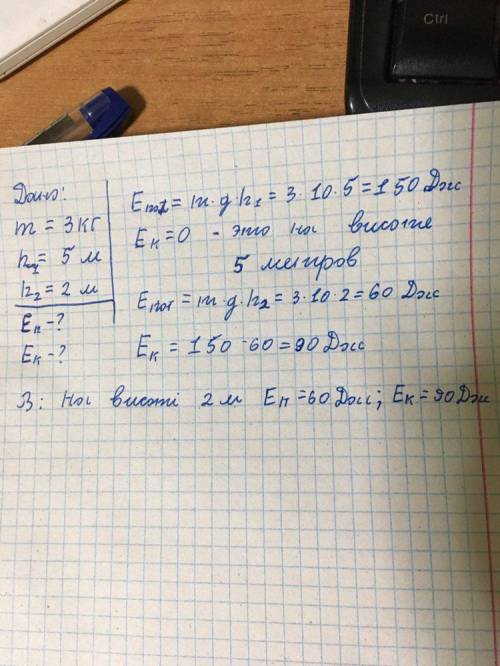 Ctrl
Дано:
m = 3 кг
h₁ = 5 м
h₂ = 2 м
Eп - ?
Eк - ?
Eпот1 = m · g · h₁ = 3 · 10 · 5 = 150 Дж
Eк = 0 - это на високе
5 метров
Eпот = m · g · h₂ = 3 · 10 · 2 = 60 Дж
Eк = 150 - 60 = 90 Дж
В: На висоті 2 м Eп = 60 Дж; Eк = 90 Дж